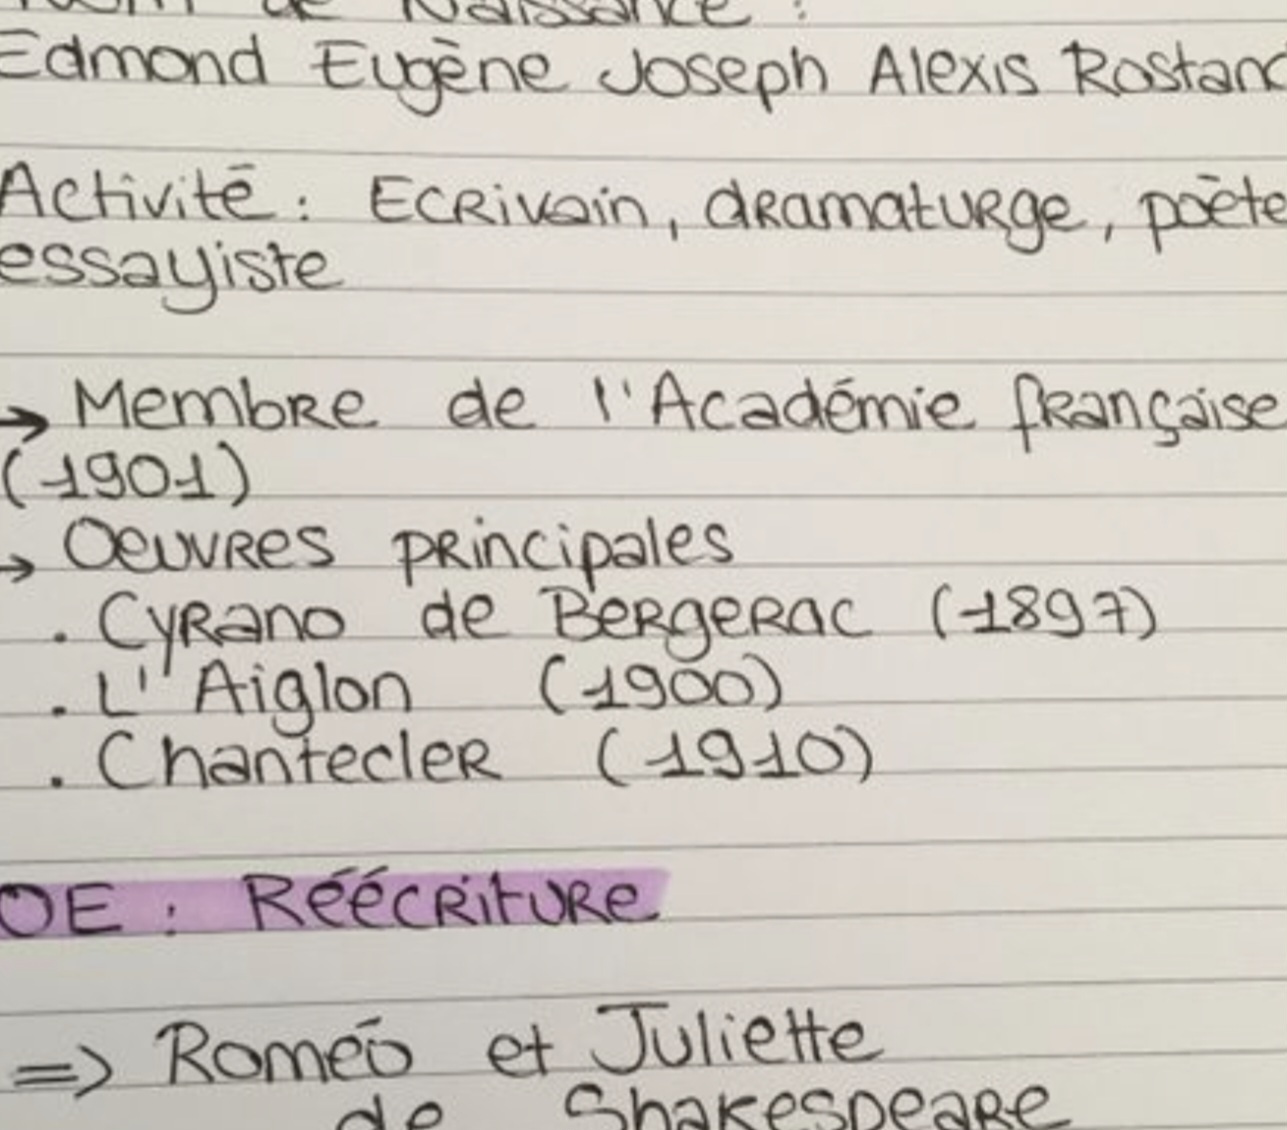 Nom de Naissance :
Edmond Eugène Joseph Alexis Rostand
Activité : Ecrivain, dramaturge, poète
essayiste
→ Membre de l'Académie française
(1901)
→ Oeuvres principales
. Cyrano de Bergerac (1897)
. L'Aiglon (1900)
. Chantecler (1910)
OE : Réécriture
=> Roméo et Juliette
de Shakespeare